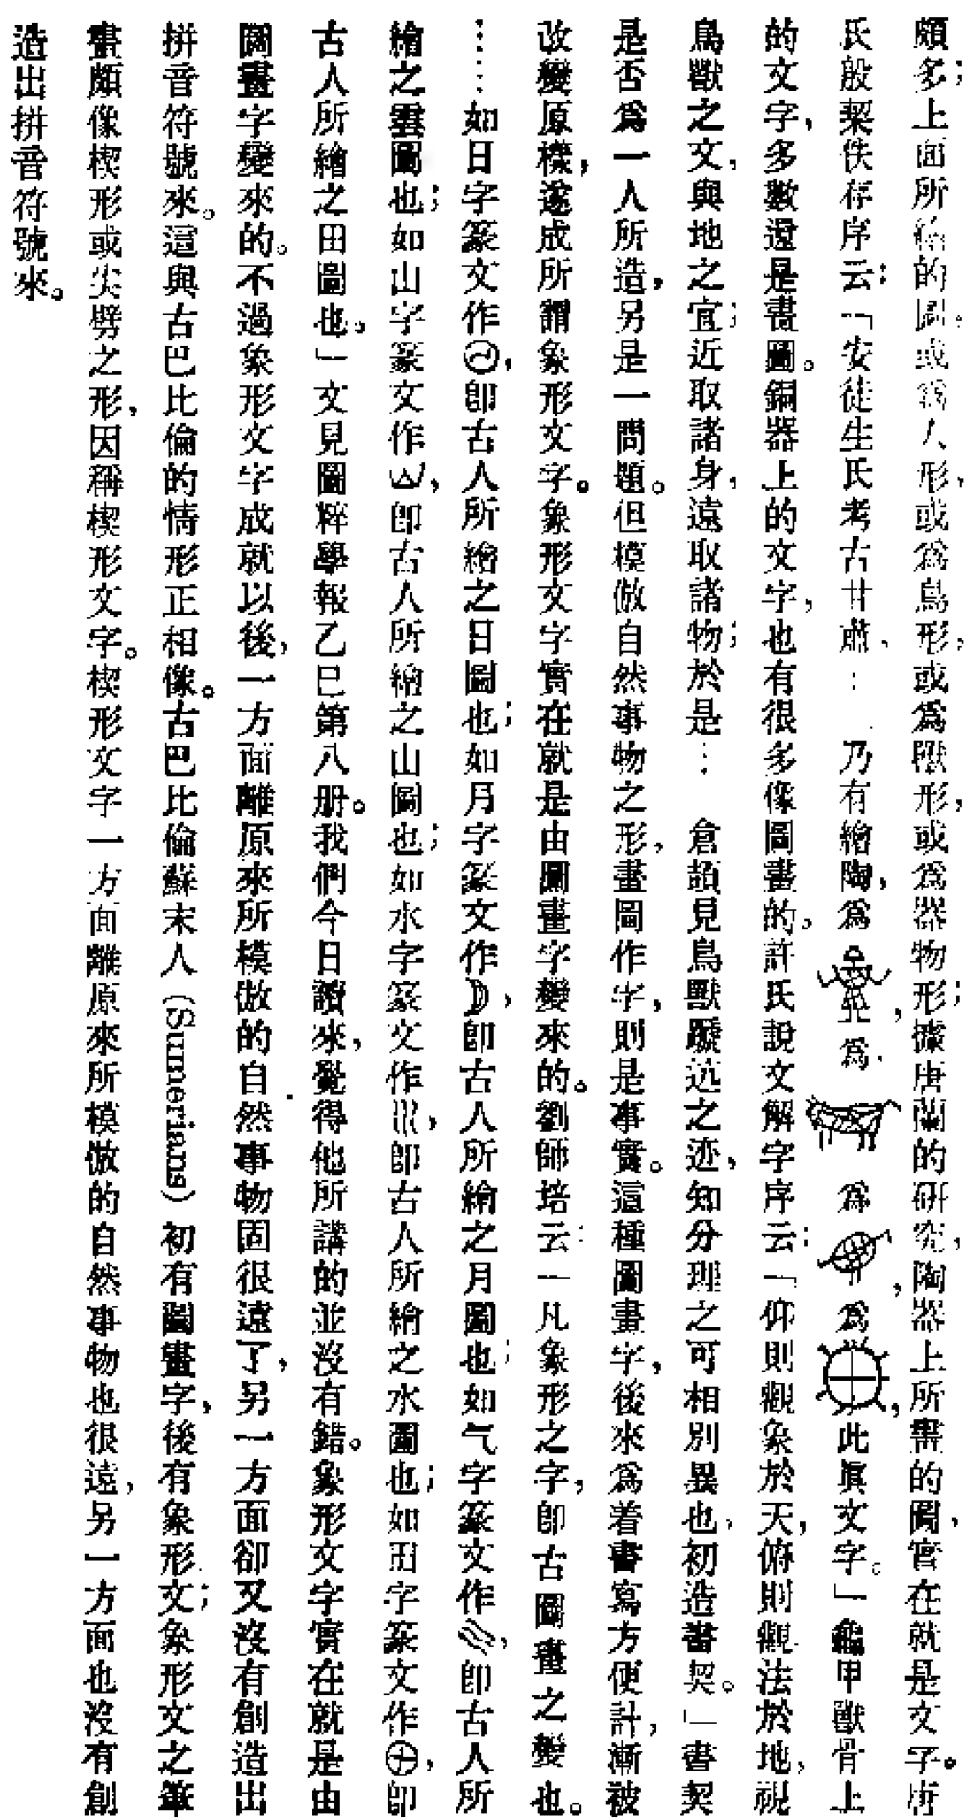 頗多；上面所繪的圖。或爲人形，或爲鳥形，或爲獸形，或爲器物形；據唐蘭的研究，陶器上所畫的圖，實在就是文字。唐
氏殷契佚存序云：「安徒生氏考古甘肅、……乃有繪陶，爲，爲，爲，爲，此眞文字。」龜甲獸骨上
的文字，多數還是畫圖。銅器上的文字，也有很多像圖畫的，許氏說文解字序云：「仰則觀象於天，俯則觀法於地，視
鳥獸之文，與地之宜；近取諸身，遠取諸物；於是……倉頡見鳥獸蹏迒之迹，知分理之可相別異也，初造書契。」書契
是否爲一人所造，另是一問題。但模倣自然事物之形，畫圖作字，則是事實。這種圖畫字，後來爲着書寫方便計，漸被
改變原樣，遂成所謂象形文字。象形文字實在就是由圖畫字變來的。劉師培云：「凡象形之字，卽古圖畫之變也。
……如日字篆文作，卽古人所繪之日圖也；如月字篆文作，卽古人所繪之月圖也；如气字篆文作，卽古人所
繪之雲圖也；如山字篆文作，卽古人所繪之山圖也；如水字篆文作，卽古人所繪之水圖也；如田字篆文作，卽
古人所繪之田圖也。」文見國粹學報乙巳第八册。我們今日讀來，覺得他所講的並沒有錯。象形文字實在就是由
圖畫字變來的。不過象形文字成就以後，一方面離原來所模倣的自然事物固很遠了，另一方面卻又沒有創造出
拼音符號來。這與古巴比倫的情形正相像。古巴比倫蘇末人（Sumerians）初有圖畫字，後有象形文；象形文之筆
畫頗像楔形或尖劈之形，因稱楔形文字。楔形文字一方面離原來所模倣的自然事物也很遠，另一方面也沒有創
造出拼音符號來。